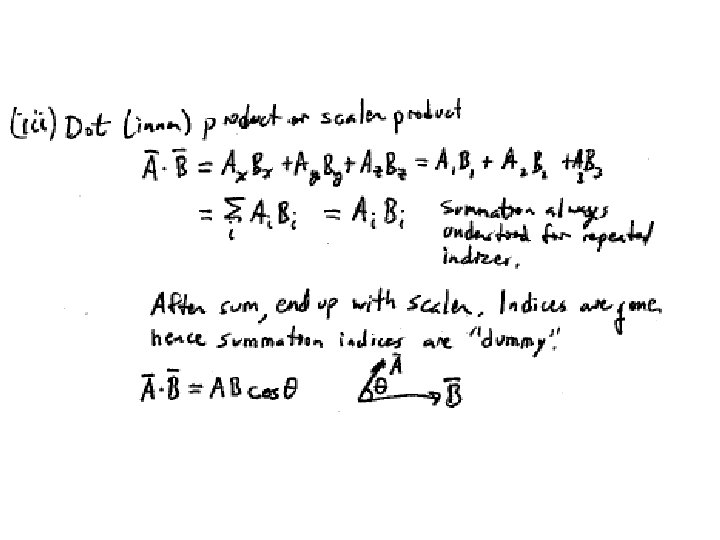 (iii) Dot (inner) product or scalar product
Ā·B̄ = AₓBₓ + A_yB_y + A_zB_z = A₁B₁ + A₂B₂ + A₃B₃
= Σᵢ AᵢBᵢ = AᵢBᵢ Summation always
understood for repeated
indices.
After sum, end up with scalar. Indices are gone,
hence summation indices are "dummy".
Ā·B̄ = AB cos θ θ Ā B̄